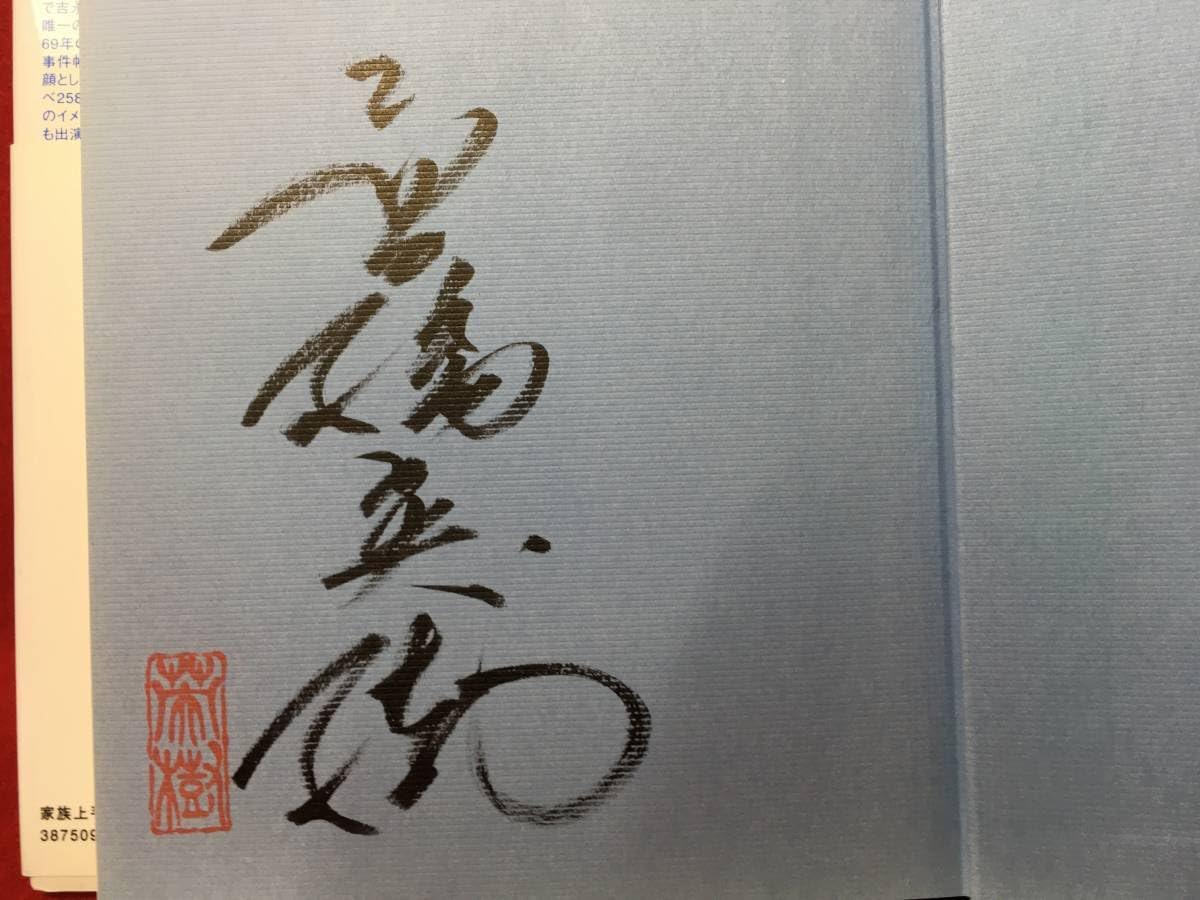 で吉
唯一の
69年の
事件帖
顔とし
べ258
のイメ
も出演
高橋英樹
英樹
家族上手
387509